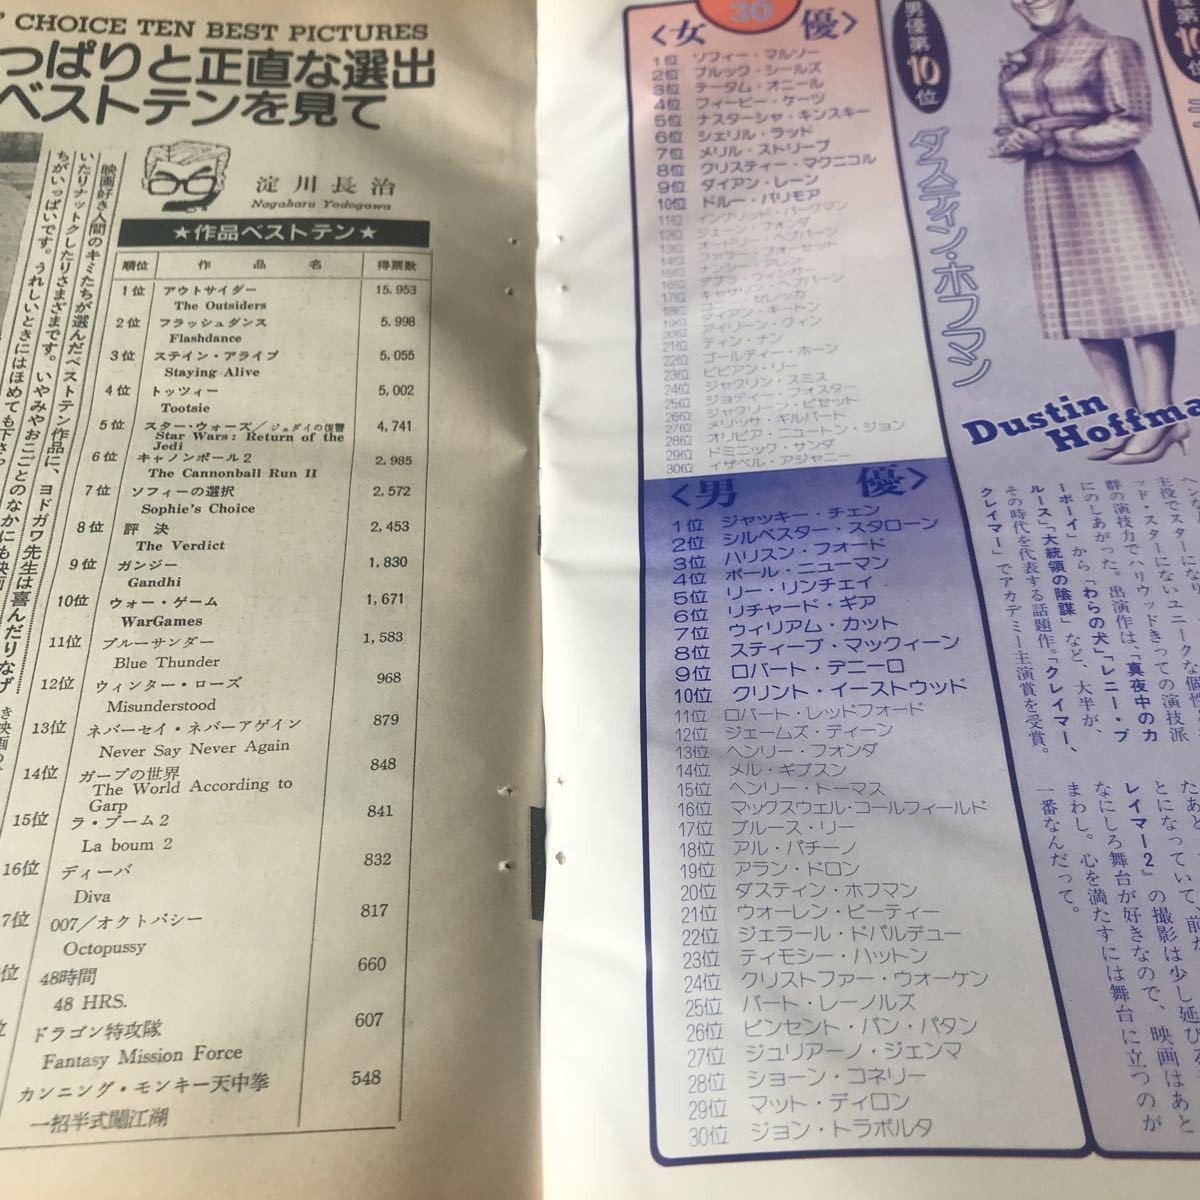 CHOICE TEN BEST PICTURES
っぱりと正直な選出
ベストテンを見て
淀川長治
Nagaharu Yodogawa
映画好き人間のキミたちが選んだベストテン作品に、ヨドガワ先生は喜んだりなげ
いたりナットクしたりさまざまです。いやみやおこごとのなかにも映画
ちがいっぱいです。うれしいときにはほめても下さ
★作品ベストテン★
順位 作品名 得票数
1位 アウトサイダー 15,953
The Outsiders
2位 フラッシュダンス 5,998
Flashdance
3位 ステイン・アライブ 5,055
Staying Alive
4位 トッツィー 5,002
Tootsie
5位 スター・ウォーズ/ジェダイの復讐 4,741
Star Wars: Return of the
Jedi
6位 キャノンボール2 2,985
The Cannonball Run II
7位 ソフィーの選択 2,572
Sophie's Choice
8位 評決 2,453
The Verdict
9位 ガンジー 1,830
Gandhi
10位 ウォー・ゲーム 1,671
WarGames
11位 ブルーサンダー 1,583
Blue Thunder
12位 ウィンター・ローズ 968
Misunderstood
13位 ネバーセイ・ネバーアゲイン 879
Never Say Never Again
14位 ガープの世界 848
The World According to
Garp
15位 ラ・ブーム2 841
La boum 2
16位 ディーバ 832
Diva
7位 007/オクトパシー 817
Octopussy
位 48時間 660
48 HRS.
位 ドラゴン特攻隊 607
Fantasy Mission Force
カンニング・モンキー天中拳 548
一招半式闖江湖
30
〈女優〉
1位 ソフィー・マルソー
2位 ブルック・シールズ
3位 テータム・オニール
4位 フィービー・ケーツ
5位 ナスターシャ・キンスキー
6位 シェリル・ラッド
7位 メリル・ストリープ
8位 クリスティー・マクニコル
9位 ダイアン・レーン
10位 ドルー・バリモア
11位 イングリッド・バーグマン
12位 ジェーン・フォンダ
13位 オードリー・ヘプバーン
14位 ファラー・フォーセット
15位 ナンシー・アレン
16位 デブラ・ウィンガー
17位 キャサリン・ヘプバーン
18位 コニー・セレッカ
19位 ダイアン・キートン
20位 アイリーン・クィン
21位 ティン・ナン
22位 ゴールディー・ホーン
23位 ビビアン・リー
24位 ジャクリン・スミス
25位 ジョディー・フォスター
26位 ジャクリーン・ビセット
27位 メリッサ・ギルバート
28位 オリビア・ニュートン・ジョン
29位 ドミニック・サンダ
30位 イザベル・アジャニー
〈男優〉
1位 ジャッキー・チェン
2位 シルベスター・スタローン
3位 ハリスン・フォード
4位 ポール・ニューマン
5位 リー・リンチェイ
6位 リチャード・ギア
7位 ウィリアム・カット
8位 スティーブ・マックィーン
9位 ロバート・デニーロ
10位 クリント・イーストウッド
11位 ロバート・レッドフォード
12位 ジェームズ・ディーン
13位 ヘンリー・フォンダ
14位 メル・ギブスン
15位 ヘンリー・トーマス
16位 マックスウェル・コールフィールド
17位 ブルース・リー
18位 アル・パチーノ
19位 アラン・ドロン
20位 ダスティン・ホフマン
21位 ウォーレン・ビーティー
22位 ジェラール・ドパルデュー
23位 ティモシー・ハットン
24位 クリストファー・ウォーケン
25位 バート・レーノルズ
26位 ビンセント・バン・パタン
27位 ジュリアーノ・ジェンマ
28位 ショーン・コネリー
29位 マット・ディロン
30位 ジョン・トラボルタ
男優第10位
ダスティン・ホフマン
Dustin
Hoffma
主役でスターになり
ッド・スターにないユニークな個性
群の演技力でハリウッドきっての演技派
にのしあがった。出演作は、「真夜中のカ
ーボーイ」から「わらの犬」「レニー・ブ
ルース」「大統領の陰謀」など、大半が、
その時代を代表する話題作。「クレイマー、
クレイマー」でアカデミー主演賞を受賞。
たあと、
とになっていて、前
レイマー2』の撮影は少し延びる
なにしろ舞台が好きなので、映画はあと
まわし。心を満たすには舞台に立つのが
一番なんだって。